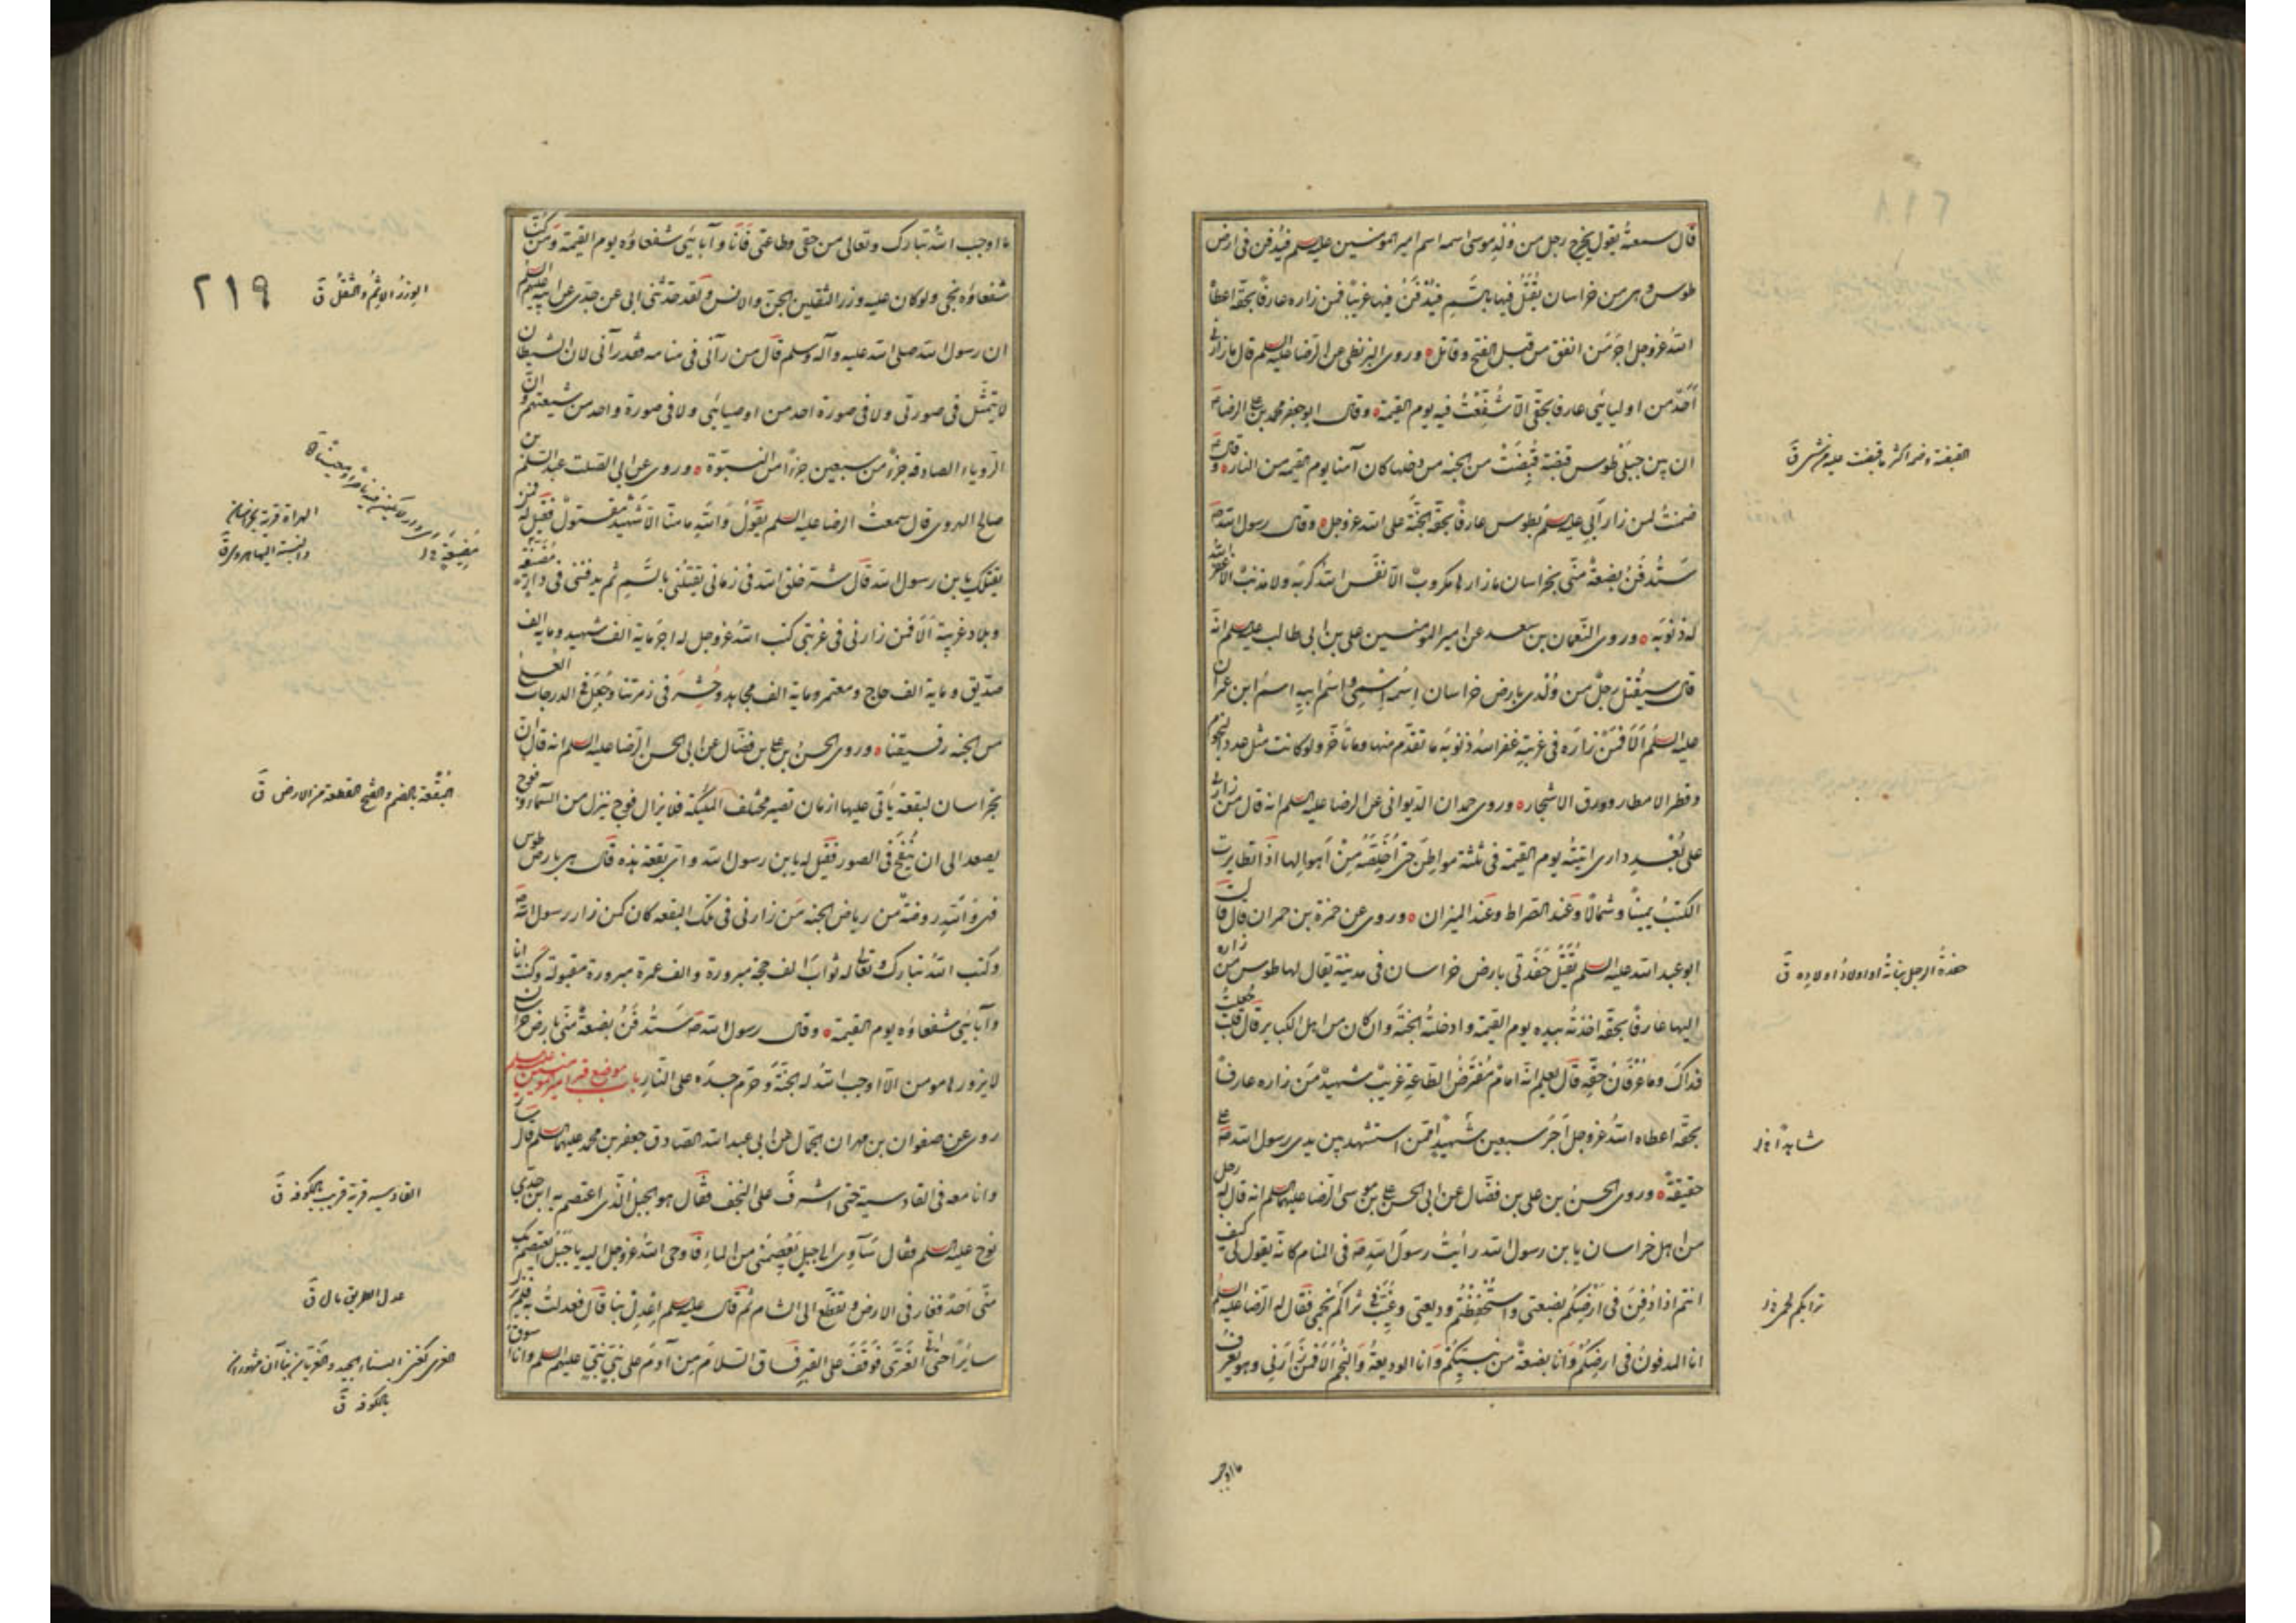 قال سمعته يقول يخرج رجل من ولد موسى اسمه اسم امير المومنين عليه السلم فيدفن فى ارض
طوس وهى من خراسان يُقتَل فيها بالسّم فيُدفَنُ فيها غريبًا فمن زاره عارفًا بحقّه اعطاه
اللهُ عزوجل اجرَ مَن انفق من قبل الفتح وقاتل ه وروى البزنطى عن الرضا عليه السلم قال ما زارنى
احدٌ من اوليائى عارفا بحقّى الّا شُفِّعْتُ فيه يوم القيمة ه وقال ابوجعفر محمد بن على الرضا ع
ان بين جبلى طوس قبضة قُبِضَتْ من الجنه من دخلها كان آمنا يوم القيمه من النار ه وقال ع
ضمنتُ لمن زار ابى عليه السلم بطوس عارفًا بحقّه الجنّةَ على الله عزوجل ه وقال رسول الله ص
سَتُدفَنُ بضعةٌ منّى بخراسان ما زارها مكروبٌ الّا نفّس اللهُ كربَه ولا مذنبٌ الّا غفر الله
له ذنوبَه ه وروى النّعمان بن سعد عن امير المومنين على بن ابى طالب عليه السلم انه
قال سيُقتل رجلٌ من وُلدى بارض خراسان اسمُه اسمى واسمُ ابيهِ اسمُ ابن عمران
عليه السلم اَلَا فمَنْ زارَه فى غربته غفر اللهُ ذنوبَه ما تقدّم منها وما تأخّر ولو كانت مثل عدد النجوم
وقطر الامطار وورق الاشجار ه وروى حمدان الديوانى عن الرضا عليه السلم انه قال من زارنى
على بُعْدِ دارى اتيتُه يوم القيمة فى ثلثة مواطنَ حتى اُخلّصَه مِنْ اَهوالِها اذا تطايرت
الكتبُ يمينًا وشمالًا وعند الصراط وعند الميزان ه وروى عن حمزة بن حمران قال قال
ابو عبد الله عليه السلم يُقتَل حَفَدَتى بارض خراسان فى مدينة يقال لها طوس من زاره
اليها عارفًا بحقّه اخذتُه بيده يوم القيمة وادخلتُه الجنّةَ وان كان من اهل الكباير قال قلت جُعِلتُ
فداكَ وما عرفانُ حقِّه قال يعلم انّه امامٌ مُفترَضُ الطاعةِ غريبٌ شهيدٌ مَن زاره عارفًا
بحقّه اعطاه اللهُ عزوجل اجرَ سبعين شهيدًا ممّن استشهد بين يدى رسول الله ص على
حقيقةٍ ه وروى الحسنُ بن على بن فضّال عن ابى الحسن على بن موسى الرضا عليهما السلم انه قال له رجل
من اهل خراسان يا بن رسول الله رأيتُ رسولَ الله ص فى المنام كانّه يقول لى كيف
انتم اذا دُفِنَ فى ارضِكُم بضعتى واستُحفِظتُم وديعتى وغُيِّبَ فى ثراكُم نجمى فقال له الرضا عليه السلم
انا المدفونُ فى ارضِكُم وانا بضعةٌ من نبيّكُم وانا الوديعةُ والنجمُ اَلَا فمن زارنى وهو يعرف
القبضة وضمه اكثر ما قبضت عليه من شىء ق
حفدةُ الرجل بناتُه او اولادُ اولاده ق
شاهدًا خ ل
ثرايكم لحمى خ ل
ما اوجب
ما اوجب اللهُ تبارك وتعالى من حقى وطاعتى فأنا وآبائى شفعاؤه يوم القيمة ومَن كُنّا
شفعاؤه نجى ولو كان عليه وزر الثقلين الجنّ والانس ولقد حدّثنى ابى عن جدّى عن ابيه عليهم السلم
ان رسول الله صلى الله عليه وآله وسلم قال من رآنى فى منامه فقد رآنى لان الشيطان
لا يتمثّل فى صورتى ولا فى صورة احد من اوصيائى ولا فى صورة واحد من شيعتهم وانّ
الرّؤياء الصادقه جزءٌ من سبعين جزءًا من النبوّة ه وروى عن ابى الصلت عبد السلم بن
صالح الهروى قال سمعتُ الرضا عليه السلم يقولُ واللهِ ما منّا الّا شهيدٌ مقتولٌ فقيل له فمن
يقتلك يا بن رسول الله قال شرّ خلق الله فى زمانى يقتلُنى بالسّمِ ثم يدفننى فى دارٍ مضيقة
وبلاد غربة اَلَا فمن زارنى فى غربتى كتب اللهُ عزوجل له اجرَ ماية الف شهيد وماية الف
صدّيق وماية الف حاج ومعتمر وماية الف مجاهد وحُشِرَ فى زمرتنا وجُعِلَ فى الدرجات العلى
من الجنه رفيقنا ه وروى الحسنُ بن على بن فضّال عن ابى الحسن الرضا عليه السلم انه قال ان
بخراسان لبقعة يأتى عليها زمان تصير مختلف الملئكة فلا يزال فوج ينزل من السماء وفوج
يصعد الى ان يُنفَخ فى الصور فقيل له يا بن رسول الله واىّ بقعة هذه قال هى بارض طوس
فهى واللهِ روضةٌ من رياض الجنه مَن زارنى فى تلك البقعه كان كمن زار رسول الله ص
وكتب اللهُ تبارك وتعالى له ثوابَ الف حجة مبرورة والف عمرة مبرورة مقبولة وكنت انا
وآبائى شفعاؤه يوم القيمة ه وقال رسول الله ص سَتُدفَنُ بضعةٌ منّى بارض خراسان
لا يزورها مومن الّا اوجب اللهُ له الجنّةَ وحرّم جسدَه على النّارِ باب موضع قبر امير المومنين عليه السلم
روى عن صفوان بن مهران الجمّال عن ابى عبد الله الصادق جعفر بن محمد عليهما السلم قال سار
وانا معه فى القادسية حتى اشرف على النجف فقال هو الجبل الّذى اعتصم به ابن جدّى
نوح عليه السلم فقال سَآوِى الى جبلٍ يَعْصِمُنى من الماءِ فأوحى اللهُ عزوجل اليه يا جبلُ ايعتصم بك
منّى احدٌ فغار فى الارض وتقطّع الى الشام ثم قال عليه السلم اِعْدِل بنا قال فعدلت به فلم يزل
سايرًا حتى اتى الغَرِىَّ فوقفَ على القبر فساق السّلامَ مِن آدمَ على نبىٍّ نبىٍّ عليهم السلم وانا اسوق
٢١٩
الوِزرُ الاِثمُ والثِّقلُ ق
الهراة قرية بخراسان
والنسبة اليها هروى ق
مُضِيعَةٍ خ ل
البُقعة بالضم والفتح القطعة من الارض ق
القادسيه قرية قريب الكوفه ق
عدل الطريق مال ق
الغرى كغنى البناء الجيد والغريان بناآن مشهوران
بالكوفه ق